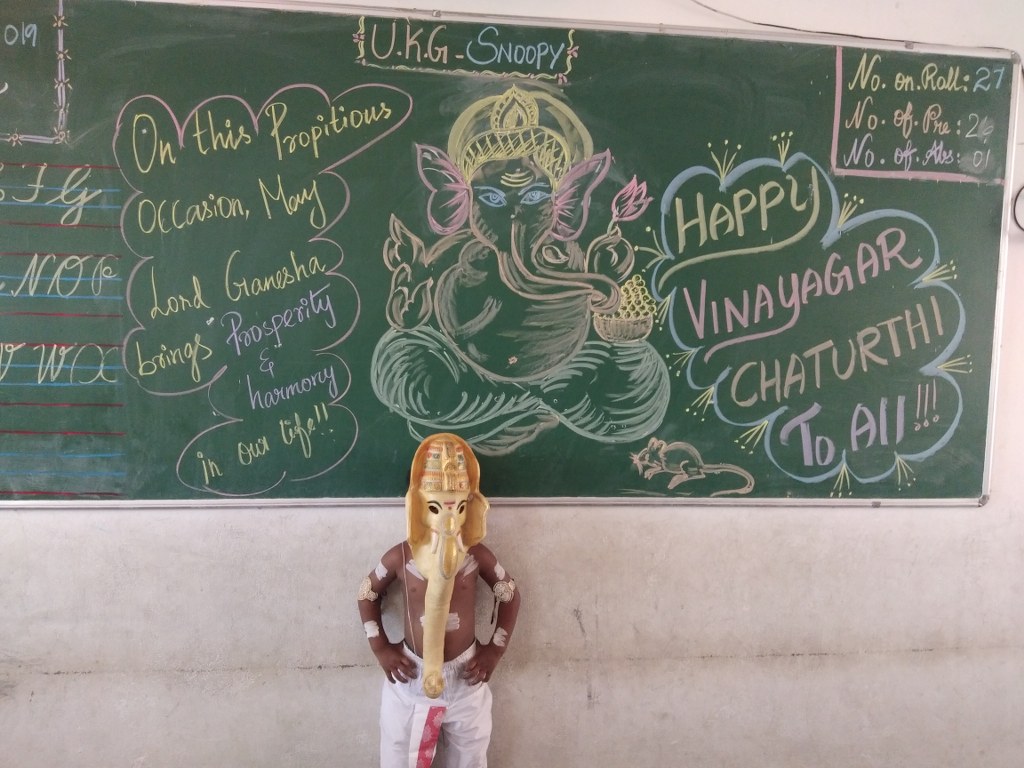 019
U.K.G - SNOOPY
No. on. Roll: 27
No. of. Pre: 26
No. of. Abs: 01
F G
NOP
W X
On this Propitious
Occasion, May
Lord Ganesha
brings Prosperity
&
harmony
in our life!!
HAPPY
VINAYAGAR
CHATURTHI
To All!!!